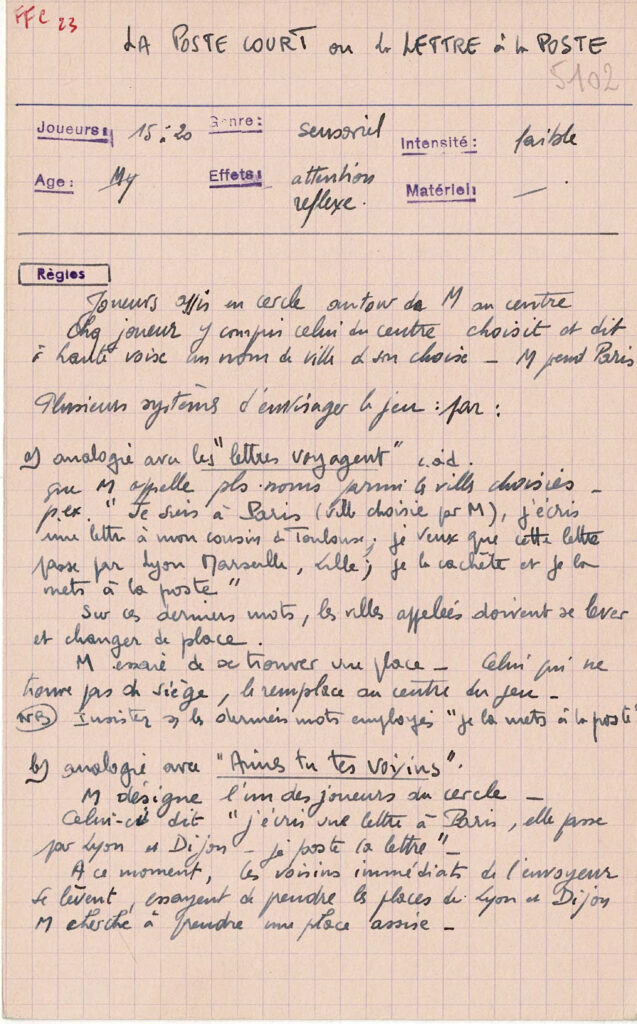 FFC 23
LA POSTE COURT ou la LETTRE à la POSTE
5102
Joueurs: 15 à 20 Genre: sensoriel Intensité: faible
Age: My Effets: attention Matériel: —
reflexe.
Règles
Joueurs assis en cercle autour de M au centre
Chq joueur y compris celui du centre choisit et dit
à haute voise un nom de ville d son choise – M prend Paris
Plusieurs systèmes d'envisager le jeu : par :
a) analogie avec les "lettres voyagent" c.à.d.
que M appelle pls noms parmi les ville choisies –
p.ex. "Je suis à Paris (ville choisie par M), j'écris
une lettre à mon cousin d Toulouse; je veux que cette lettre
passe par Lyon Marseille, Lille; je la cachète et je la
mets à la poste"
Sur ces derniers mots, les villes appelées doivent se lever
et changer de place.
M essaie de se trouver une place – Celui qui ne
trouve pas de siège, le remplace au centre du jeu –
NB Insister s/ les derniers mots employés "je la mets à la poste"
b) analogie avec "Aimes tu tes voisins".
M désigne l'un des joueurs du cercle –
Celui-ci dit "j'écris une lettre à Paris, elle passe
par Lyon et Dijon – je poste la lettre" –
A ce moment, les voisins immédiats de l'envoyeur
se lèvent, essayent de prendre les places de Lyon et Dijon
M cherche à prendre une place assise –